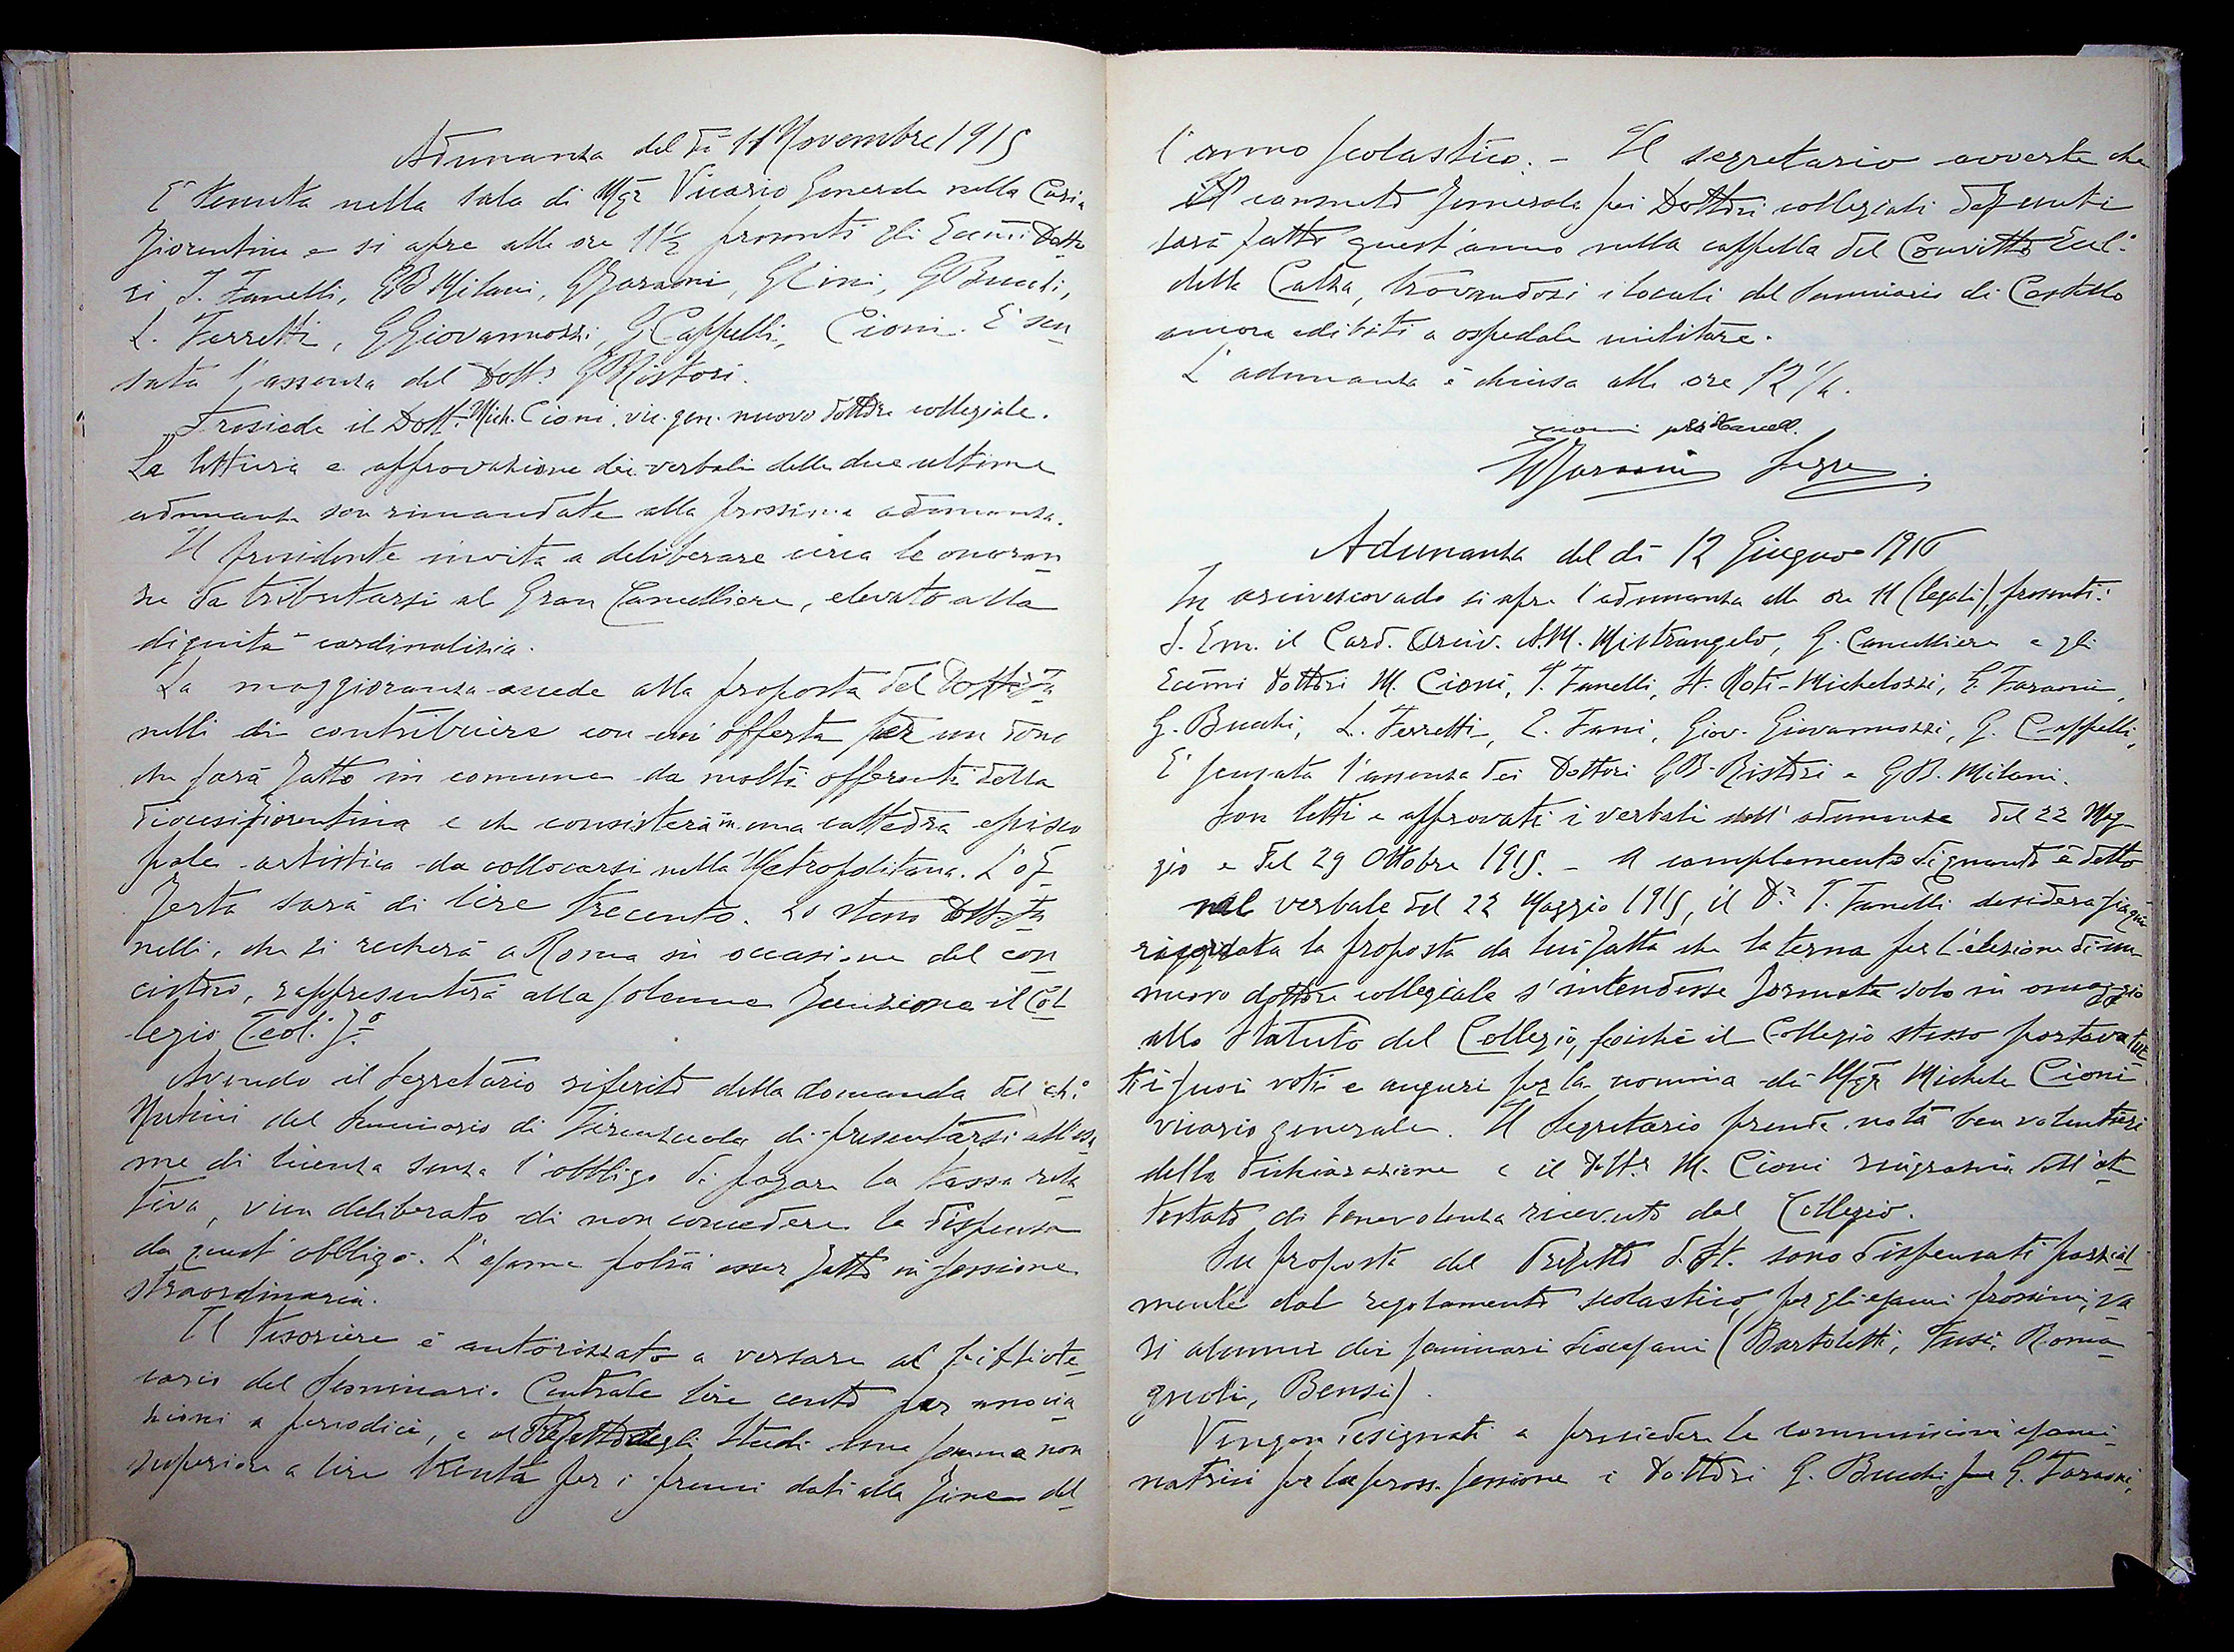 Adunanza del dì 11 Novembre 1915
È tenuta nella sala di Mgr Vicario Generale nella Curia
fiorentina e si apre alle ore 11½ presenti gli Ecc̃mi Dotto
ri T. Fanelli, GB Milani, G Faraoni, G Cini, G Bucchi,
L. Ferretti, G Giovannozzi, G. Cappelli, Cioni. È scu
sata l'assenza del Dott.r GB Ristori.
Presiede il Dott. Mich. Cioni, vic. gen. nuovo dottore collegiale.
La lettura e approvazione dei verbali delle due ultime
adunanze son rimandate alla prossima adunanza.
Il presidente invita a deliberare circa le onoran
ze da tributarsi al Gran Cancelliere, elevato alla
dignità cardinalizia.
La maggioranza accede alla proposta del Dott. Fa
nelli di contribuire con un'offerta per un dono
che sarà fatto in comune da molti offerenti della
diocesi fiorentina e che consisterà in una cattedra episco
pale artistica da collocarsi nella Metropolitana. L'of
ferta sarà di lire trecento. Lo stesso Dott. Fa
nelli, che si recherà a Roma in occasione del con
cistoro, rappresenterà alla solenne funzione il Col
legio Teol. f.o
Avendo il Segretario riferito della domanda del ch.o
del Seminario di Firenzuola di presentarsi all'esa
me di licenza senza l'obbligo di pagare la tassa rela
tiva, vien deliberato di non concedere la dispensa
da quest'obbligo. L'esame potrà esser fatto in sessione
straordinaria.
Il tesoriere è autorizzato a versare al bibliote
cario del Seminario Centrale lire cento per associa
zioni a periodici, e al Prefetto degli Studi una somma non
superiore a lire trenta per i premi dati alla fine del
l'anno scolastico. - Il segretario avverte che
il consueto funerale pei Dottori collegiali defunti
sarà fatto quest'anno nella cappella del Convitto Eccl.
della Calza, trovandosi i locali del Seminario di Castello
ancora adibiti a ospedale militare.
L'adunanza è chiusa alle ore 12¼.
G Faraoni Segr.
Adunanza del dì 12 Giugno 1916
In arcivescovado si apre l'adunanza alle ore 11 (legali), presenti:
S. Em. il Card. Arciv. A.M. Mistrangelo, G. Cancelliere e gli
Ecc̃mi Dottori M. Cioni, T. Fanelli, St. Roti-Michelozzi, G. Faraoni,
G. Bucchi, L. Ferretti, E. Fani, Giov. Giovannozzi, G. Cappelli,
È scusata l'assenza dei Dottori GB. Ristori e GB. Milani.
Son letti e approvati i verbali dell'adunanze del 22 Mag
gio e del 29 Ottobre 1915. - A complemento di quanto è detto
nel verbale del 22 Maggio 1915, il D.r T. Fanelli desidera sia qui
ricordata la proposta da lui fatta che la terna per l'elezione di un
nuovo dottore collegiale s'intendesse formata solo in omaggio
allo Statuto del Collegio, poiché il Collegio stesso portava tut
ti i suoi voti e auguri per la nomina di Mgr Michele Cioni
vicario generale. Il Segretario prende nota ben volentieri
della dichiarazione e il Dott.r M. Cioni ringrazia dell'at
testato di benevolenza ricevuto dal Collegio.
Su proposta del Prefetto d. St. sono dispensati parzial
mente dal regolamento scolastico, per gli esami prossimi, va
ri alunni dei seminari diocesani (Bartoletti, Fusi, Roma
gnoli, Bensi).
Vengon designati a presiedere le commissioni esami
natrici per la pross. sessione i Dottori G. Bucchi G. Faraoni,